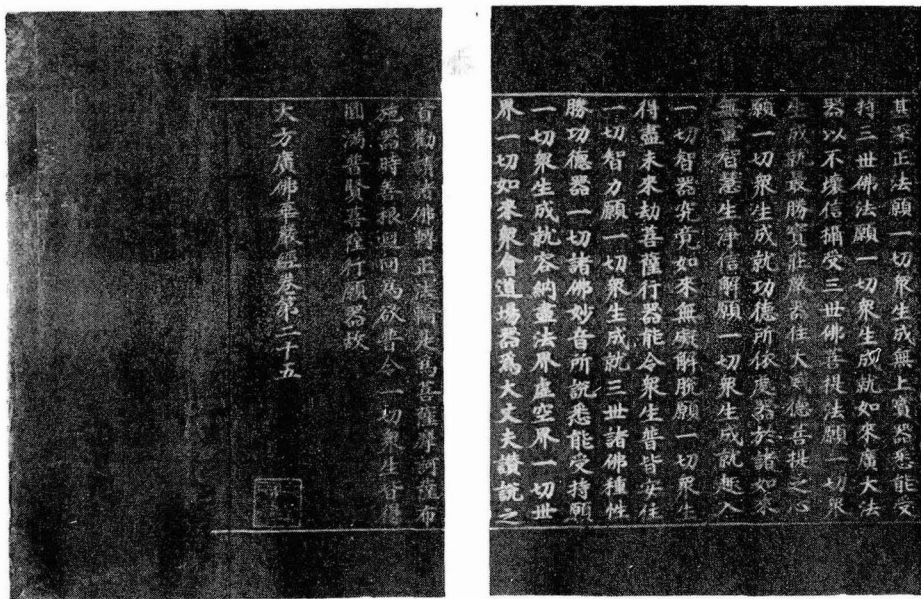 甚深正法願一切衆生成無上寶器悉能受
持三世佛法願一切衆生成就如來廣大法
器以不壞信攝受三世佛菩提法願一切衆
生成就最勝寶莊嚴器住大威德菩提之心
願一切衆生成就功德所依處器於諸如來
無量智慧生淨信解願一切衆生成就趣入
一切智器究竟如來無礙解脫願一切衆生
得盡未來劫菩薩行器能令衆生普皆安住
一切智力願一切衆生成就三世諸佛種性
勝功德器一切諸佛妙音所說悉能受持願
一切衆生成就容納盡法界虛空界一切世
界一切如來衆會道場器爲大丈夫讚說之
首勸請諸佛轉正法輪是爲菩薩摩訶薩布
施器時善根迴向爲欲普令一切衆生皆得
圓滿普賢菩薩行願器故
大方廣佛華嚴經卷第二十五